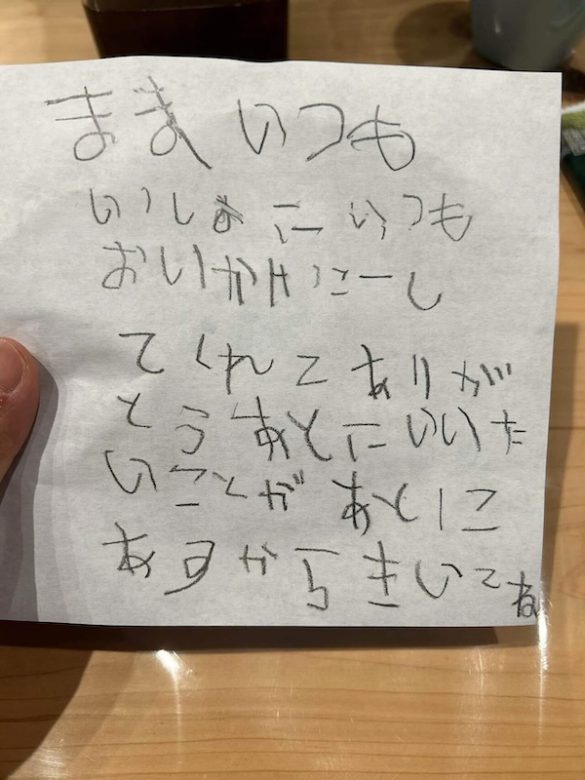 まま いつも
いっしょに いつも
おいかけっこーし
てくれてありが
とう あとにいいた
いことが あとに
あるから きいてね